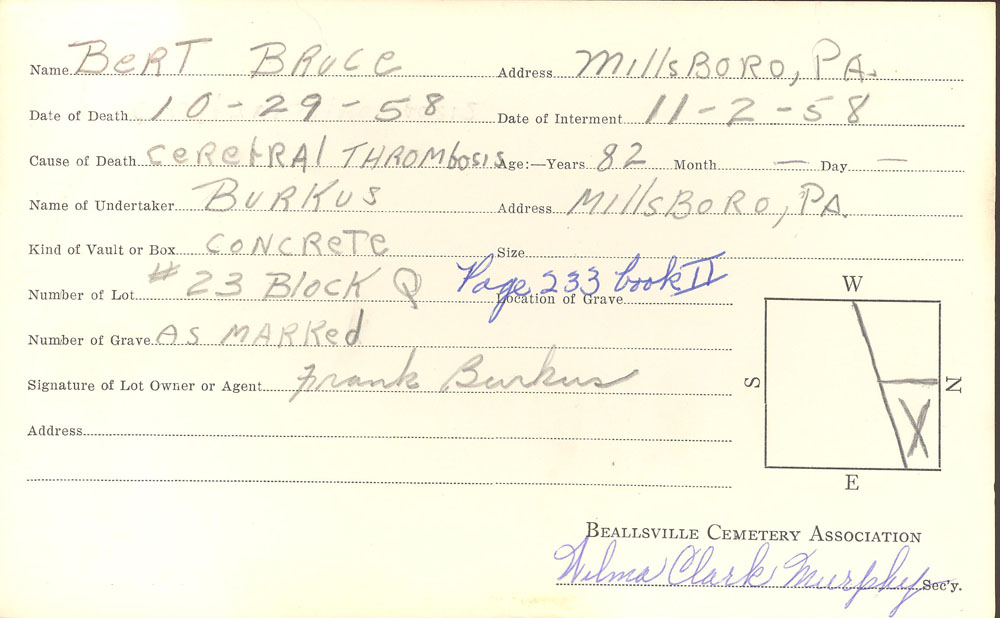 Name BeRT BRUCE Address MillsBORO, PA.
Date of Death 10-29-58 Date of Interment 11-2-58
Cause of Death CeRebRAl THROMbosis Age:—Years 82 Month — Day —
Name of Undertaker BURKUS Address MillsBORO, PA.
Kind of Vault or Box CONCReTe Size
Number of Lot #23 BlOCK Q Page 233 book II Location of Grave
Number of Grave AS MARKed
Signature of Lot Owner or Agent Frank Burkus
Address
W
S
N
X
E
BEALLSVILLE CEMETERY ASSOCIATION
Wilma Clark Murphy Sec'y.